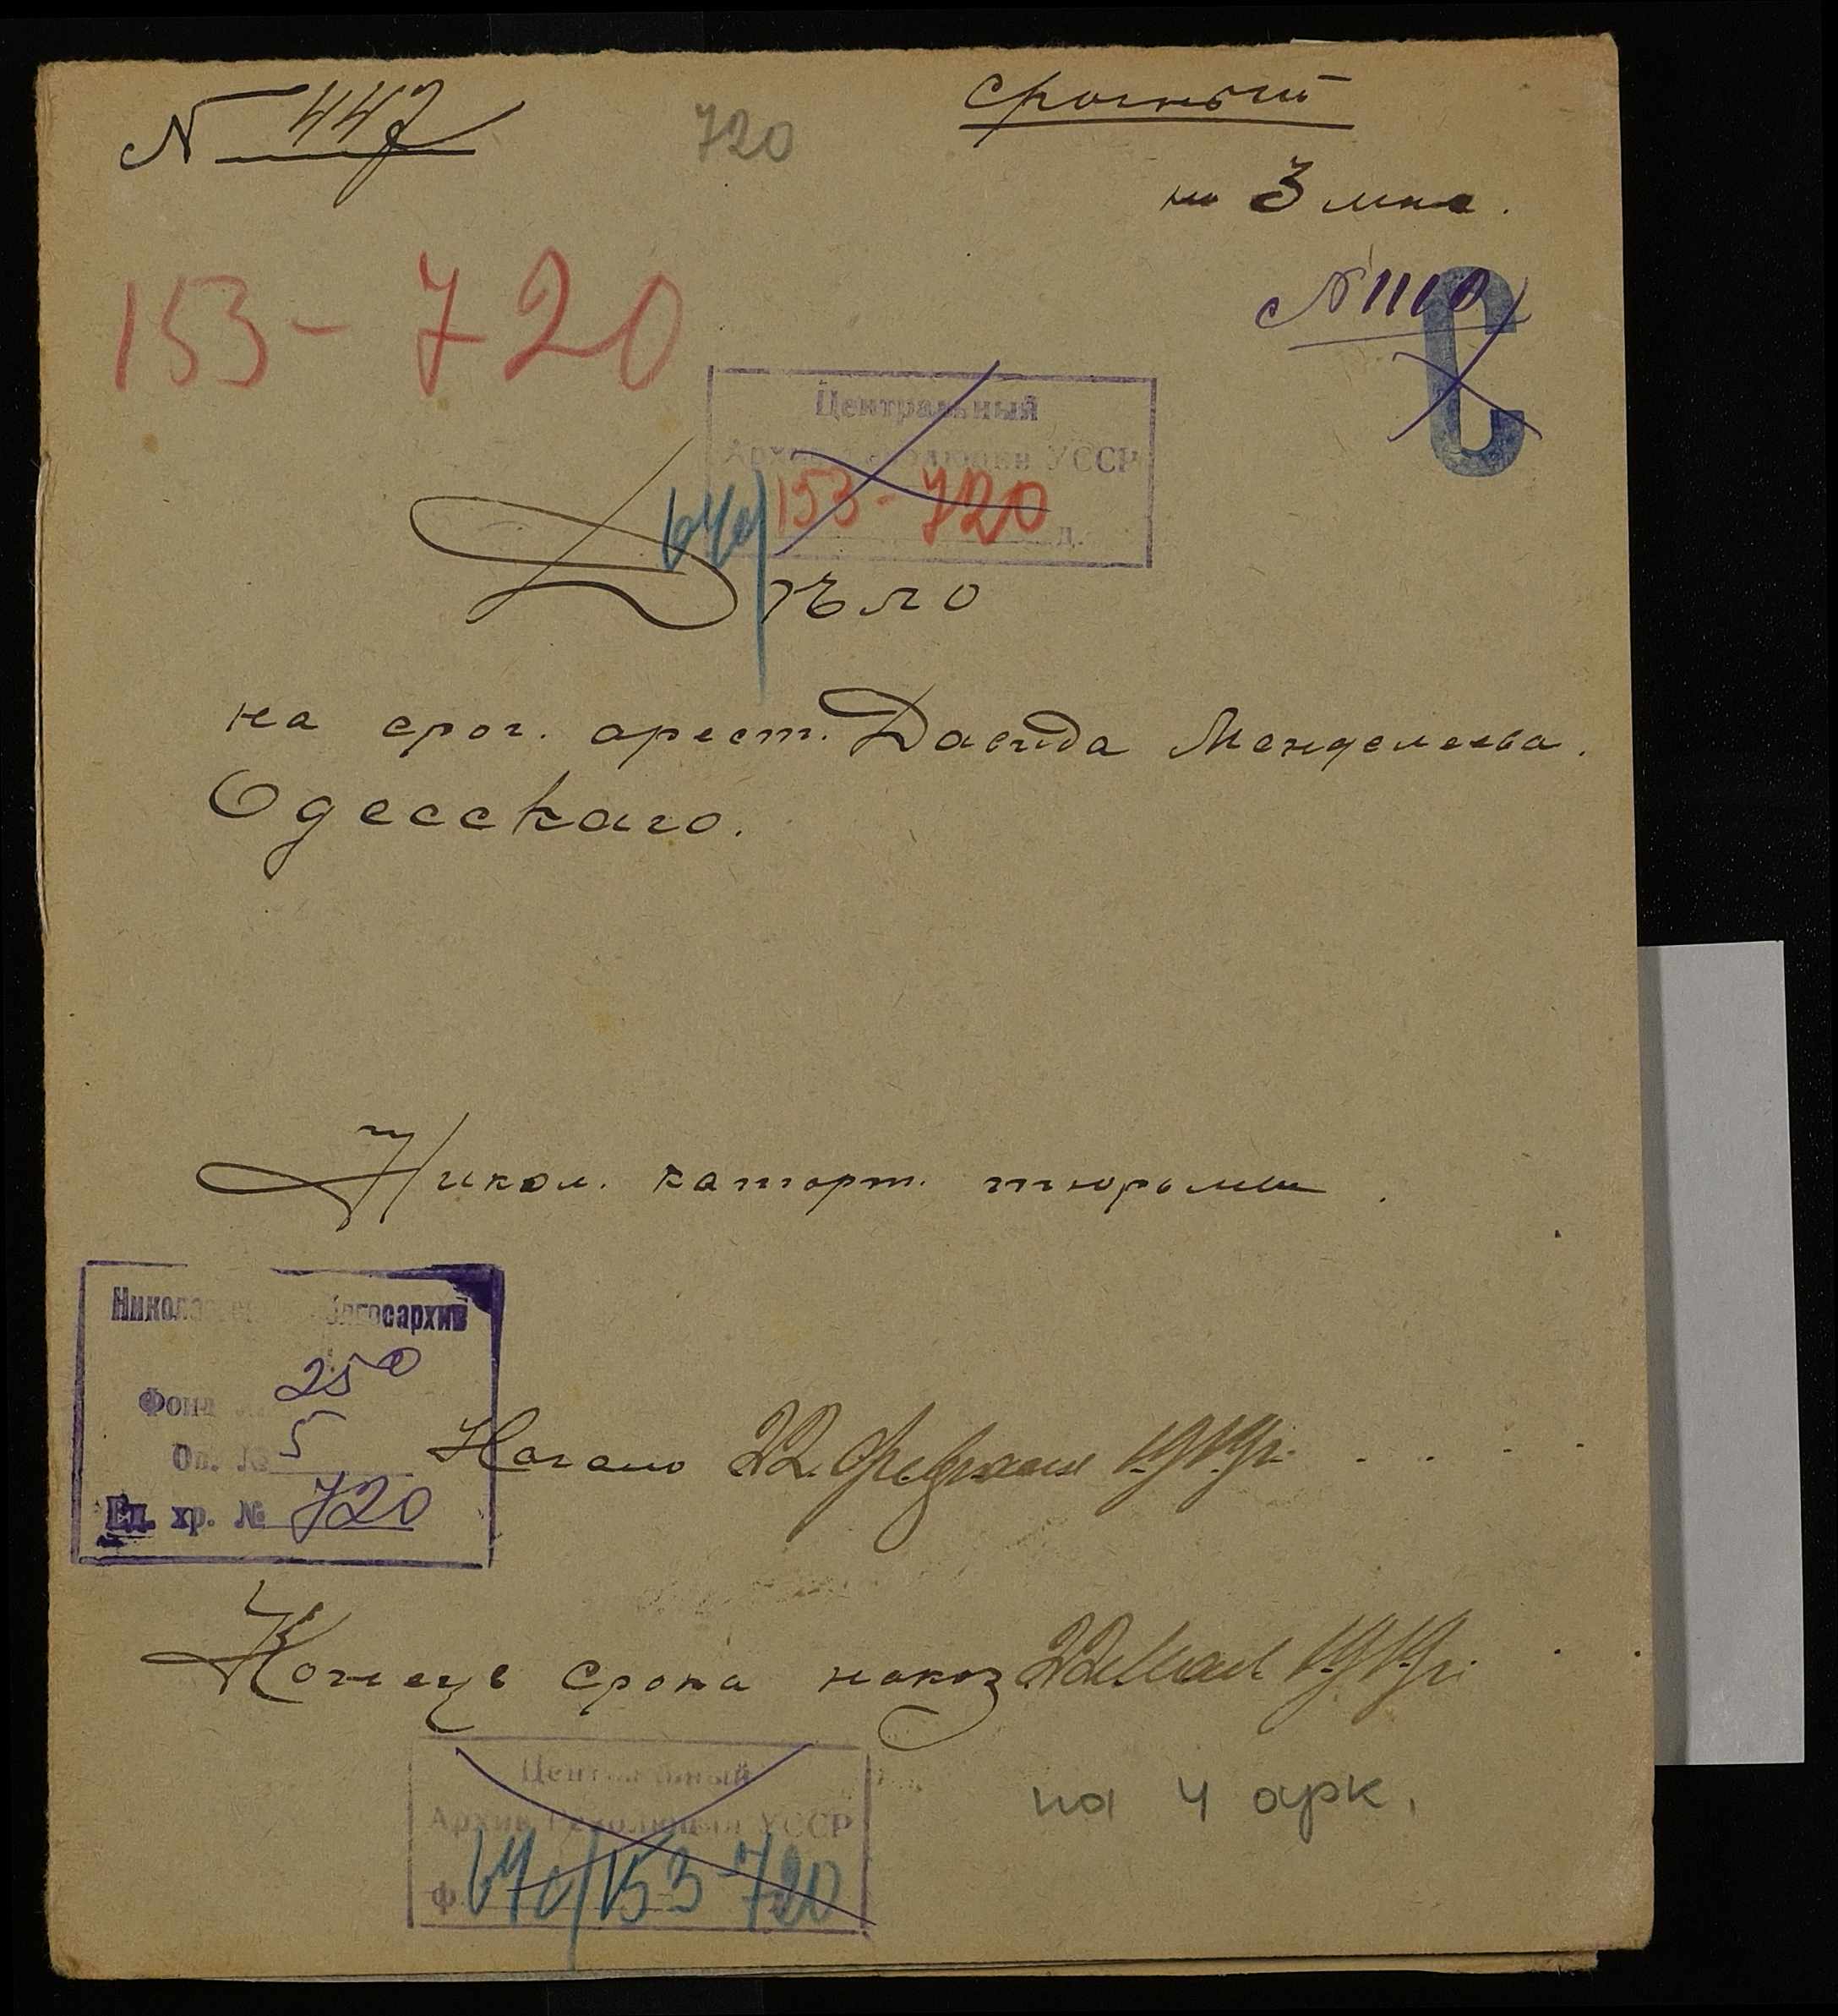 N 447
720
срочный
на 3 мца.
N 1110
С
153-720
Центральный
Архив Революции УССР
153-720
д.
Дѣло
на сроч. арест. Давида Менделеева.
Одесскаго.
Никол. каторж. тюрьмы.
Николаевский Облгосархив
Фонд 250
Оп. № 5
Ед. хр. № 720
Начало 22 февраля 1919 г.
Конецъ срока наказ 22 мая 1919 г.
Центральный
Архив Революции УССР
Ф 153-720
на 4 арк.